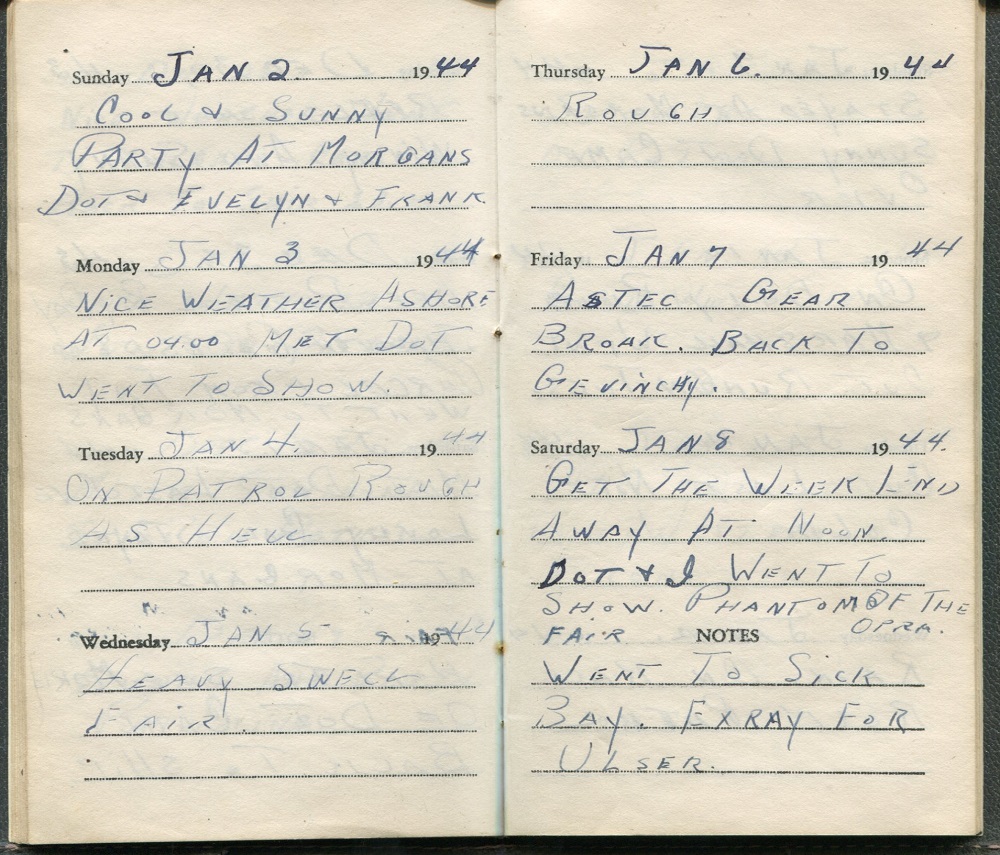 Sunday JAN 2. 1944
COOL & SUNNY
PARTY AT MORGANS
DOT & EVELYN & FRANK.
Monday JAN 3 1944
NICE WEATHER ASHORE
AT 04.00 MET DOT
WENT TO SHOW.
Tuesday JAN 4. 1944
ON PATROL ROUGH
AS HELL
Wednesday JAN 5 1944
HEAVY SWELL
FAIR.
Thursday JAN 6. 1944
ROUGH
Friday JAN 7 1944
ASTEC GEAR
BROAK. BACK TO
GEVINCHY.
Saturday JAN 8 1944.
GET THE WEEK END
AWAY AT NOON.
DOT & I WENT TO
SHOW. PHANTOM OF THE
FAIR OPRA.
NOTES
WENT TO SICK
BAY. EXRAY FOR
ULSER.